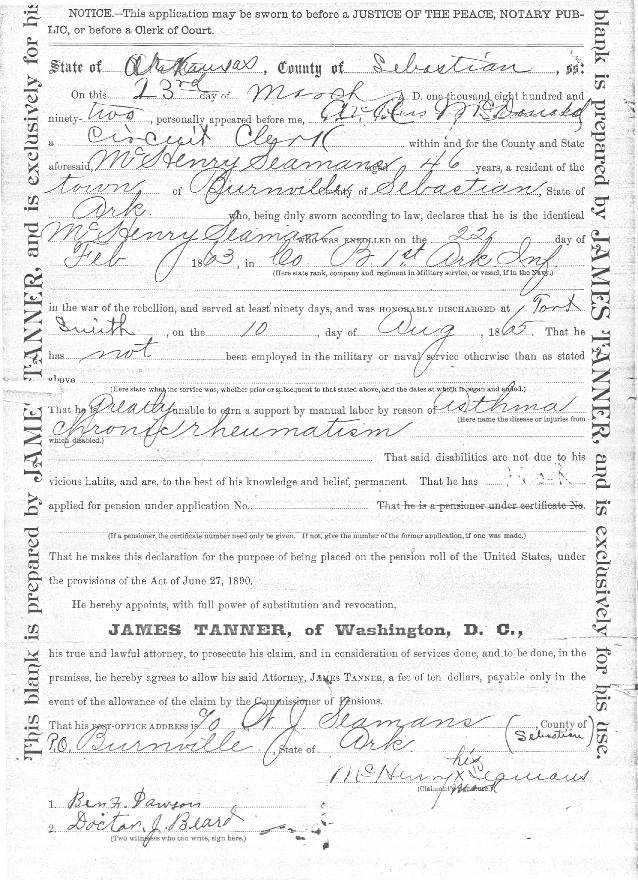 NOTICE.—This application may be sworn to before a JUSTICE OF THE PEACE, NOTARY PUB-
LIC, or before a Clerk of Court.
State of Arkansas, County of Sebastian, ss:
On this 23rd day of March A. D. one thousand eight hundred and
ninety-two, personally appeared before me,
a Circuit Clerk within and for the County and State
aforesaid, McHenry Seamans aged 46 years, a resident of the
town of Burnville County of Sebastian, State of
Ark. who, being duly sworn according to law, declares that he is the identical
McHenry Seaman who was ENROLLED on the 22 day of
Feb 1863, in Co B 1st Ark Inf
(Here state rank, company and regiment in Military service, or vessel, if in the Navy.)
in the war of the rebellion, and served at least ninety days, and was HONORABLY DISCHARGED at Fort
Smith, on the 10, day of Aug, 1865. That he
has not been employed in the military or naval service otherwise than as stated
above
(Here state what the service was, whether prior or subsequent to that stated above, and the dates at which it began and ended.)
That he is greatly unable to earn a support by manual labor by reason of asthma
(Here name the disease or injuries from
chronic rheumatism
which disabled.)
That said disabilities are not due to his
vicious habits, and are, to the best of his knowledge and belief, permanent. That he has
applied for pension under application No. That he is a pensioner under certificate No.
(If a pensioner, the certificate number need only be given. If not, give the number of the former application, if one was made.)
That he makes this declaration for the purpose of being placed on the pension roll of the United States, under
the provisions of the Act of June 27, 1890.
He hereby appoints, with full power of substitution and revocation,
JAMES TANNER, of Washington, D. C.,
his true and lawful attorney, to prosecute his claim, and in consideration of services done, and to be done, in the
premises, he hereby agrees to allow his said Attorney, JAMES TANNER, a fee of ten dollars, payable only in the
event of the allowance of the claim by the Commissioner of Pensions.
That his POST-OFFICE ADDRESS is c/o W J Seamans
P.O. Burnville, State of Ark (County of Sebastian)
his
McHenry X Seamans
mark
(Claimant's signature.)
1. Ben F. Dawson
2. Doctor J. Beard
(Two witnesses who can write, sign here.)
This blank is prepared by JAMES TANNER, and is exclusively for his
blank is prepared by JAMES TANNER, and is exclusively for his use.